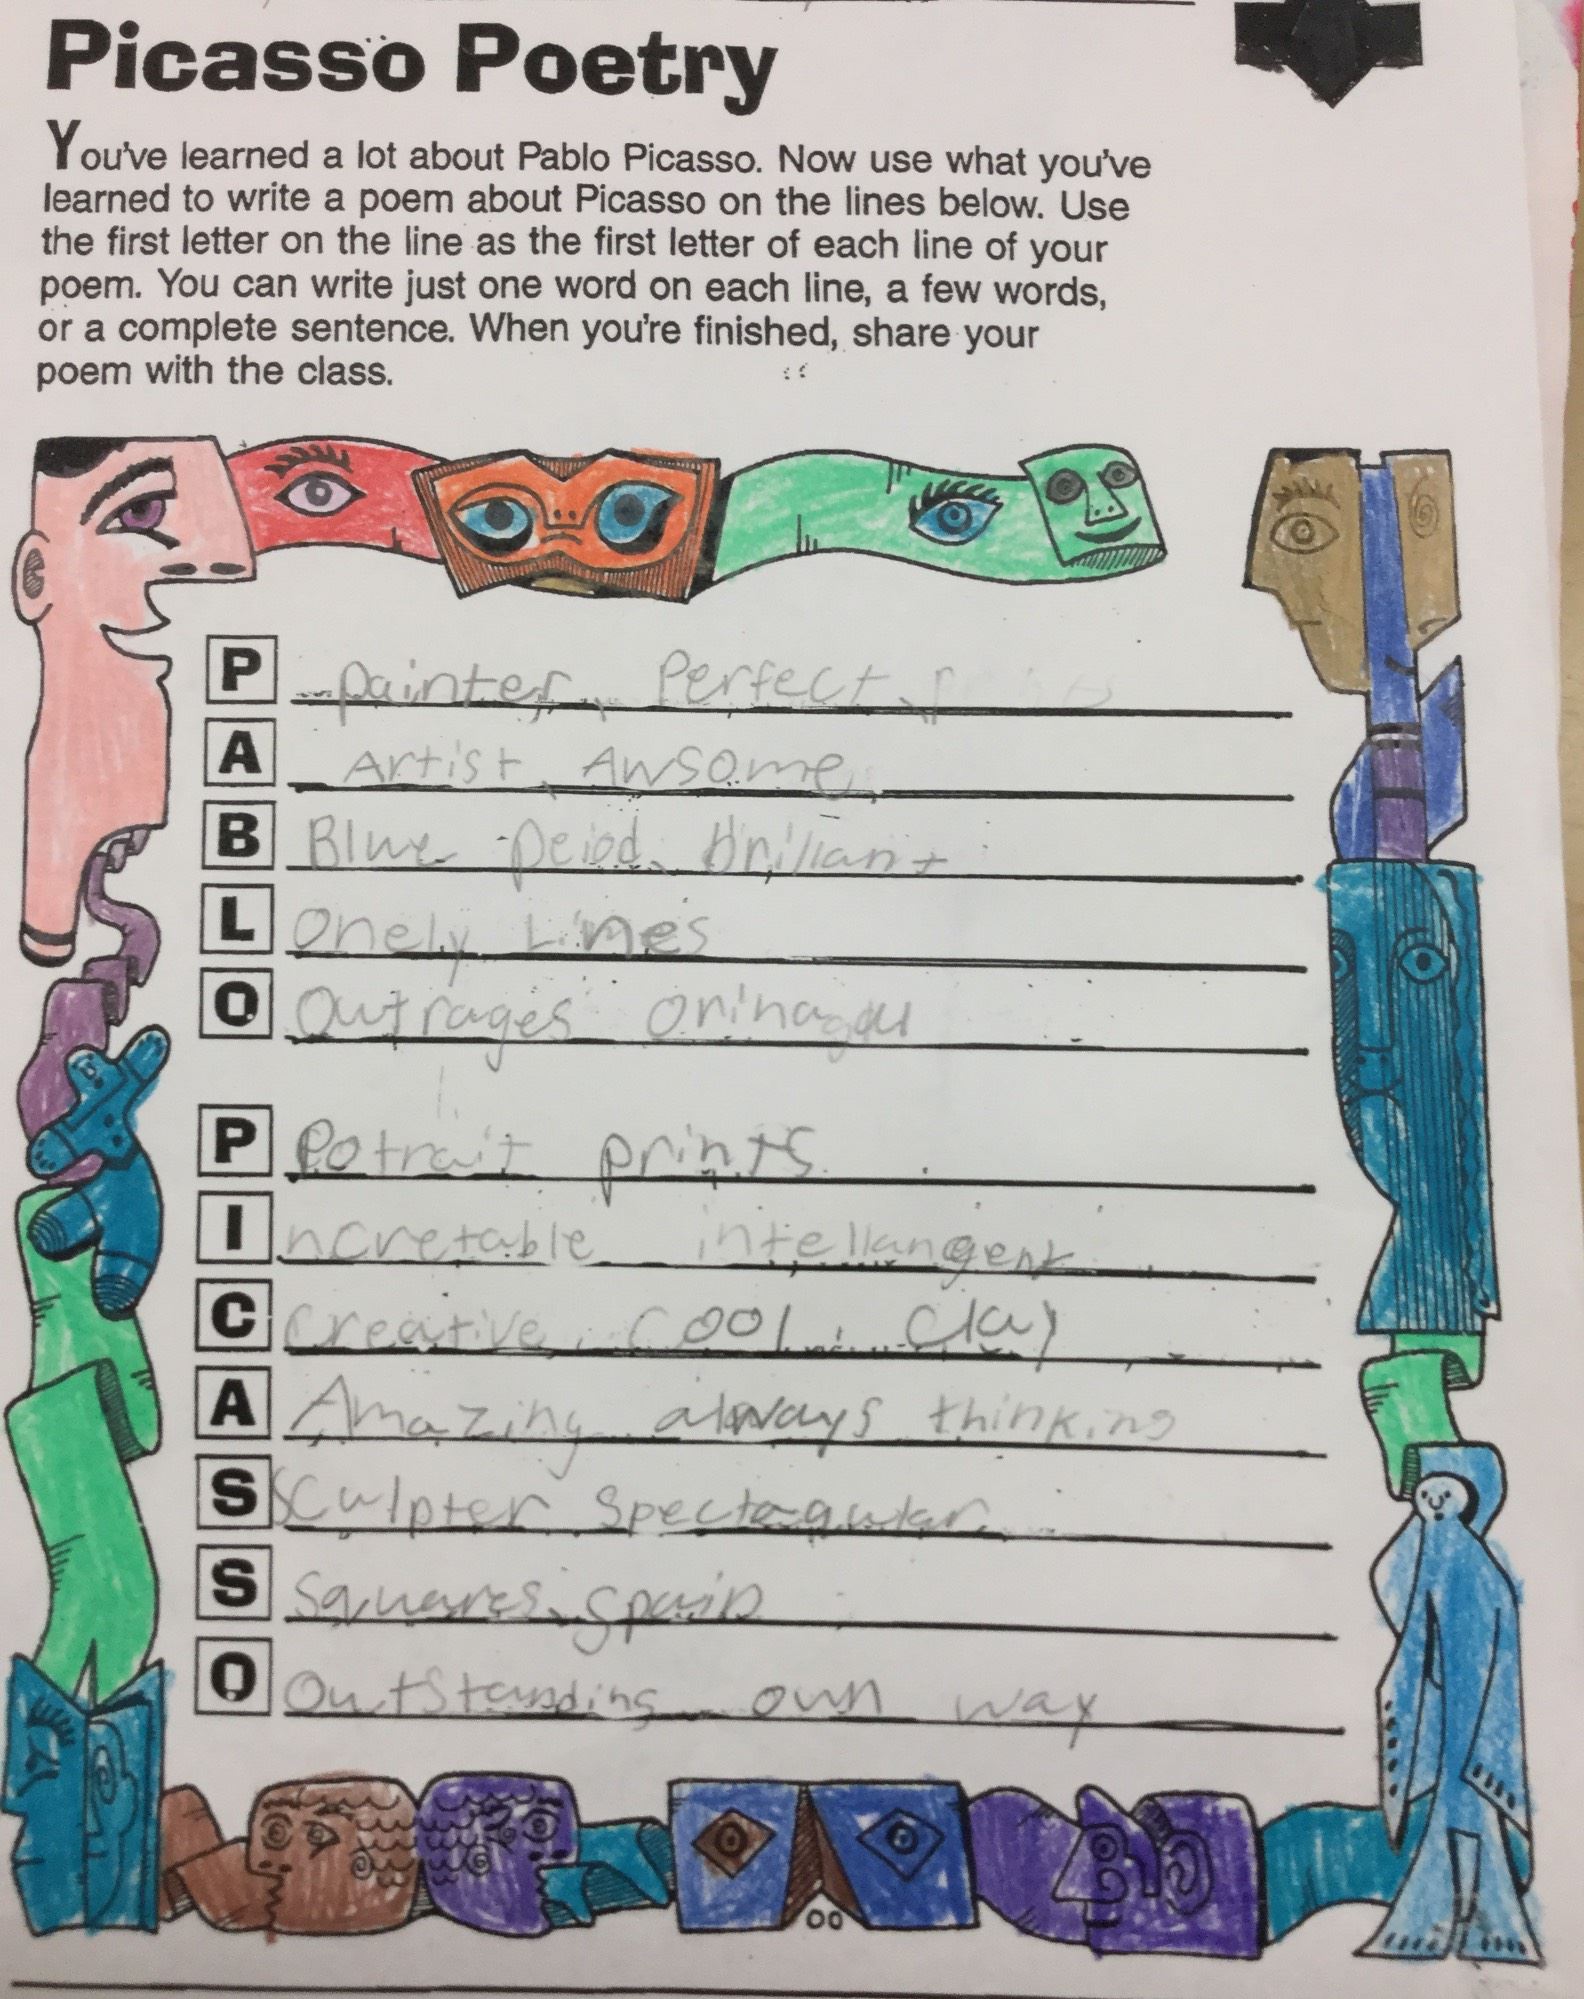 Picasso Poetry
You've learned a lot about Pablo Picasso. Now use what you've
learned to write a poem about Picasso on the lines below. Use
the first letter on the line as the first letter of each line of your
poem. You can write just one word on each line, a few words,
or a complete sentence. When you're finished, share your
poem with the class.
P painter, Perfect,
A Artist, Awsome,
B Blue peiod, brilliant
L Onely Lines
O Outrages orinagal
P Potrait prints
I ncretable intellangent
C Creative, cool, clay
A Amazing always thinking
S Sculpter Spectagular
S Squares, spain
O Outstanding own way